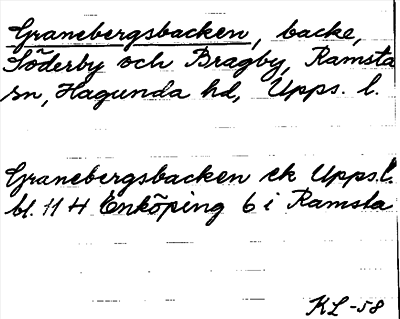 Granebergsbacken, backe,
Söderby och Bragby, Ramsta
sn, Hagunda hd, Upps. l.
Granebergsbacken ek Upps.l.
bl. 11 H Enköping 6 i Ramsta
KL -58